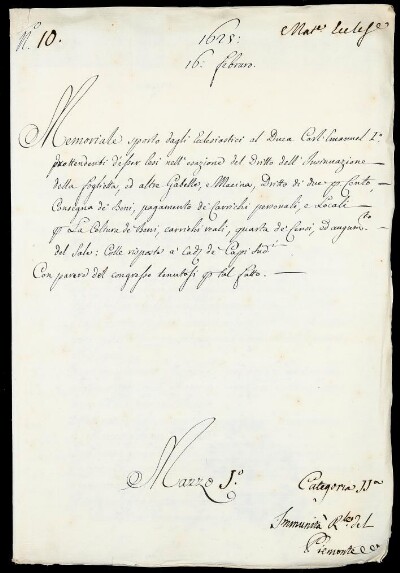 N.° 10.
1625:
Mat.e Eccles.e
16: febraro.
Memoriale sporto dagli Eclesiastici al Duca Carl' Emanuel I.°
prettendenti d'esser lesi nell'esazione del dritto dell'Insinuazione
della foglietta, ed altre Gabelle, e Macina, Dritto di due p. Cento,
Consegna de' Beni, pagamento de' Carrichi personali, e Locali
p. La Coltura de' Beni, carrichi reali, quarta de' Censi, ed augum.to
del Sale: Colle risposte a' Cad.° de' Cappi sud.i
Con parere del congresso tenutosi p. tal fatto.
Mazzo I.°
Categoria II.a
Immunità del
Piemonte